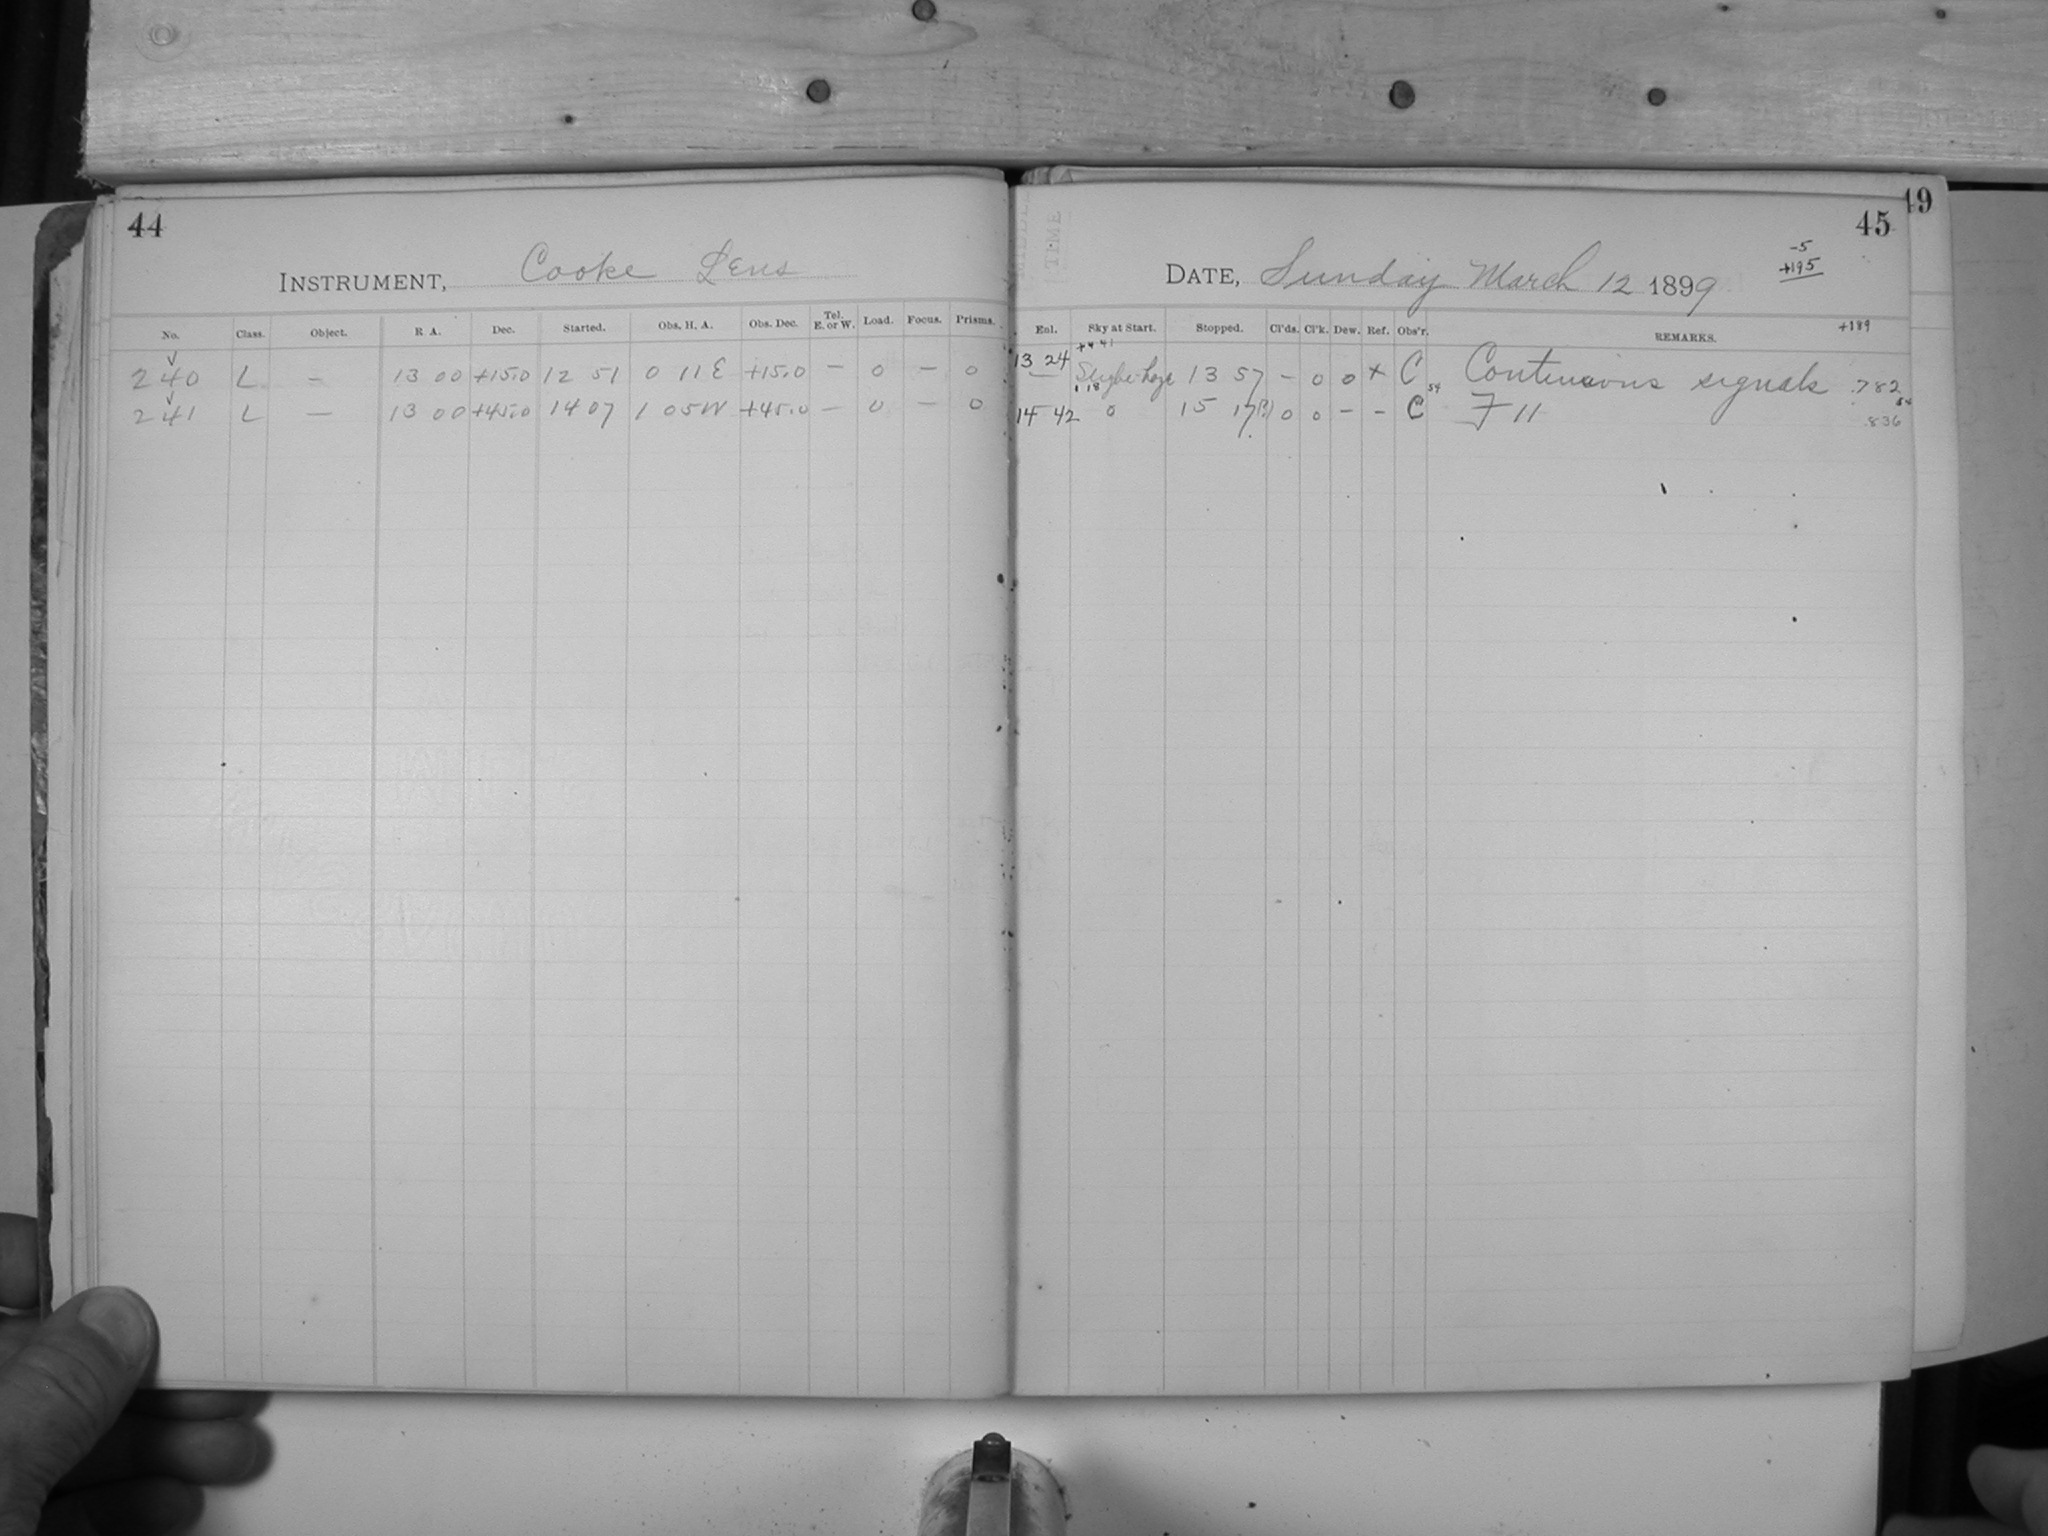 44
INSTRUMENT, Cooke Lens
No. Class. Object. R. A. Dec. Started. Obs. H. A. Obs. Dec. Tel. E. or W. Load. Focus. Prisms.
240 L — 13 00 +15.0 12 51 0 11 E +15.0 — 0 — 0
241 L — 13 00 +45.0 14 07 1 05 W +45.0 — 0 — 0
49
45
-5
+195
DATE, Sunday March 12 1899
+189
Enl. Sky at Start. Stopped. Cl'ds. Cl'k. Dew. Ref. Obs'r. REMARKS.
+4 41
13 24 — 13 57 — 0 0 + C Continuous signals .782
1 18 54 54
14 42 0 15 17 0 0 - - C F 11 .836